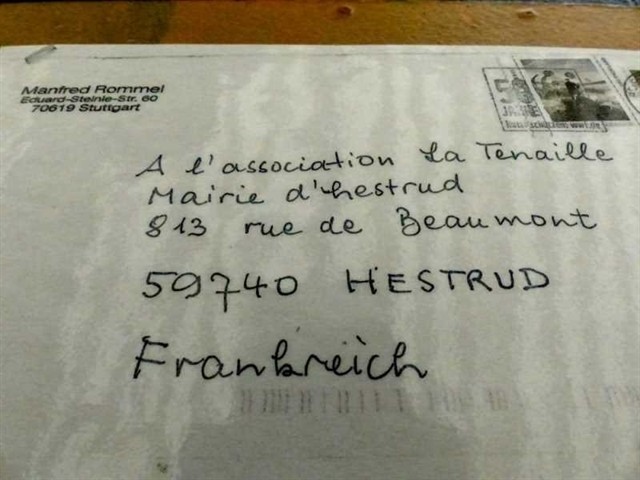 Manfred Rommel
Eduard-Steinle-Str. 60
70619 Stuttgart
50
JAHRE
A l'association La Tenaille
Mairie d'hestrud
813 rue de Beaumont
59740 HESTRUD
Frankreich